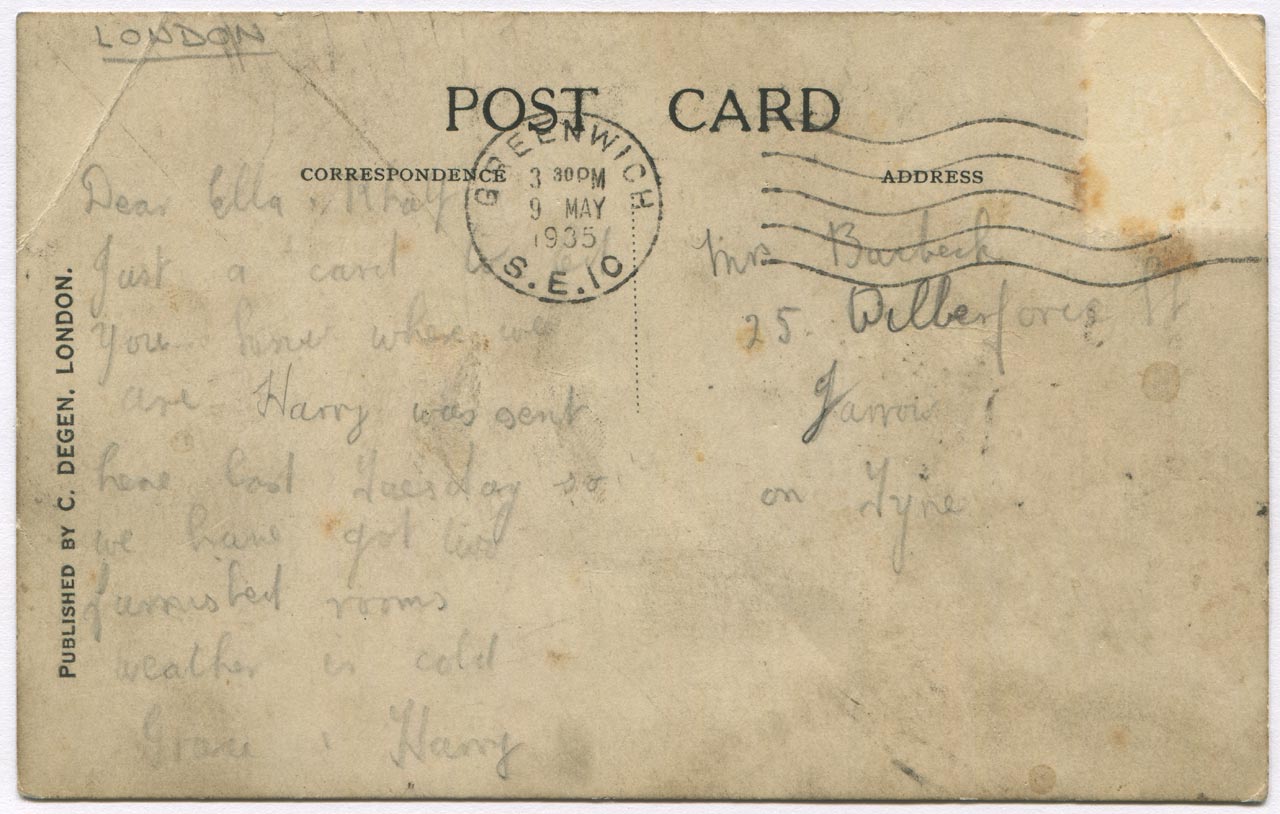 LONDON
POST CARD
CORRESPONDENCE
ADDRESS
GREENWICH
3 30PM
9 MAY
1935
S.E.10
Dear Ella
Just a card to let
you know where we
are Harry was sent
here last Tuesday so
we have got two
furnished rooms
weather is cold
Grace & Harry
Mrs
25. Wilberforce St
Jarrow
on Tyne
PUBLISHED BY C. DEGEN. LONDON.